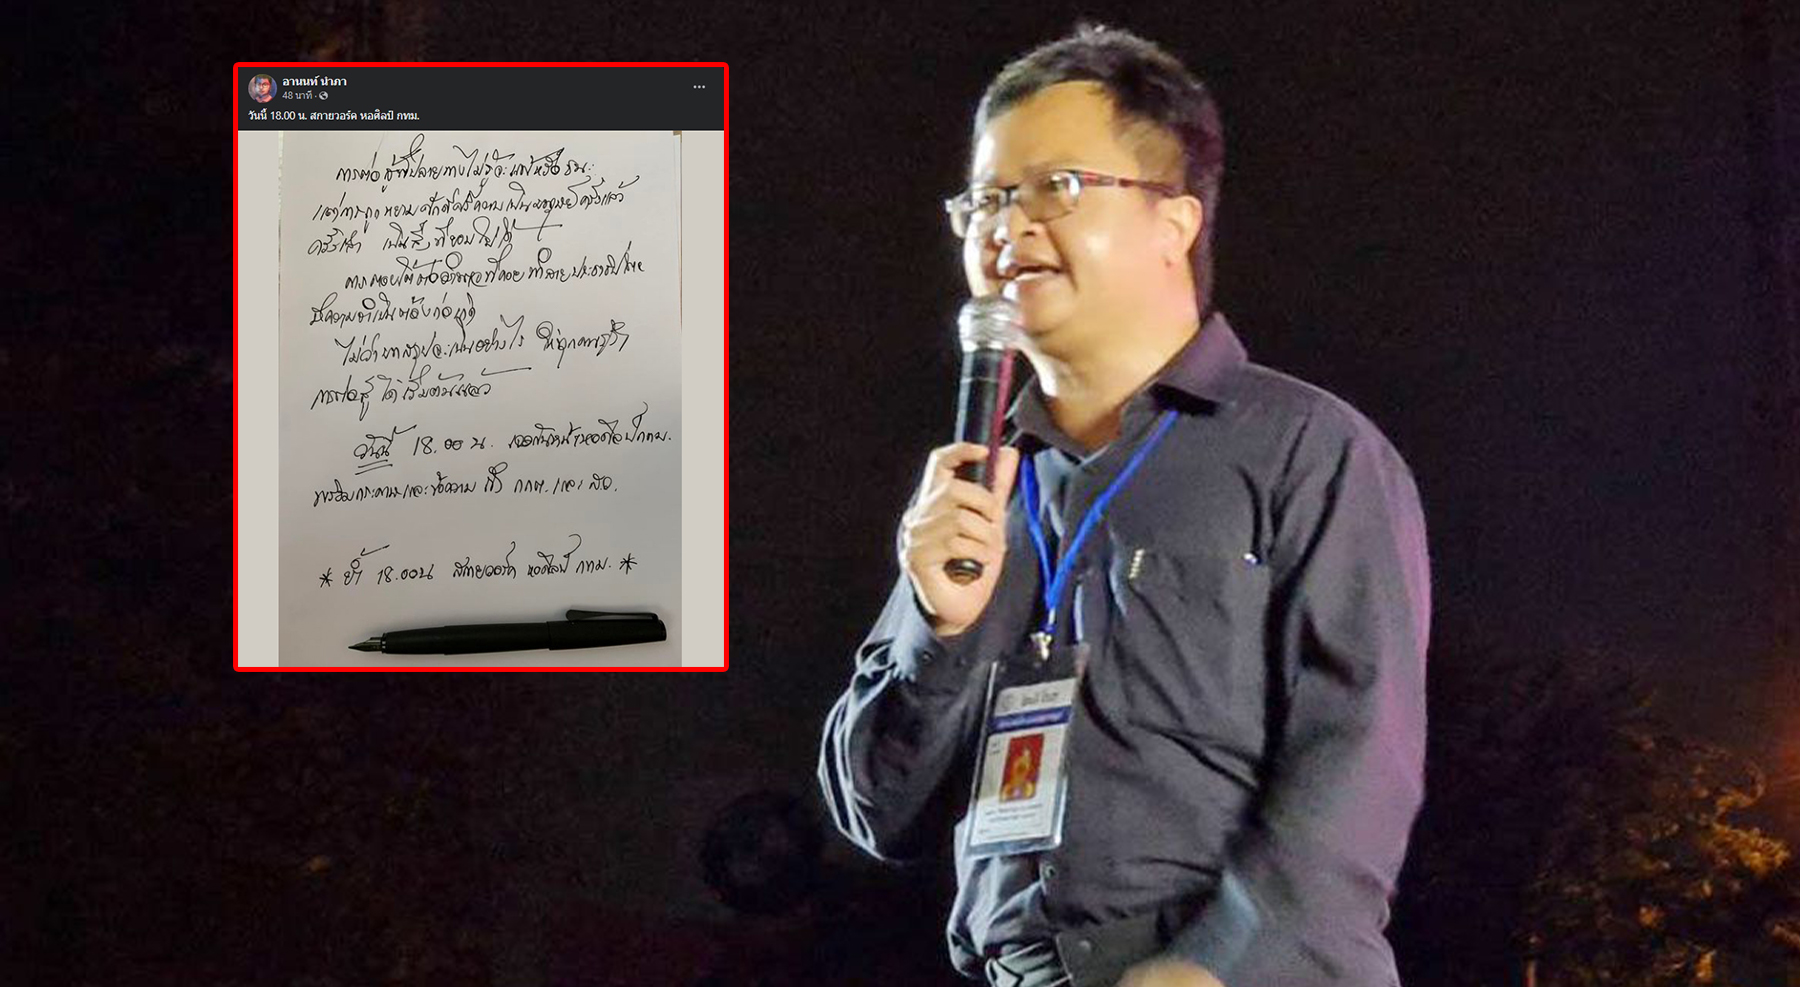 อานนท์ นำภา
48 นาที ·
วันนี้ 18.00 น. สกายวอร์ค หอศิลป์ กทม.
การต่อสู้ที่ปลายทางไม่รู้จะแพ้หรือชนะ
แต่การถูกหยามศักดิ์ศรีความเป็นมนุษย์ครั้งแล้ว
ครั้งเล่า เป็นสิ่งที่ยอมไม่ได้
การตอบโต้ต่ออำนาจที่คอยทำลายประชาธิปไตย
มีความจำเป็นต้องก่อเกิด
ไม่ว่าบทสรุปจะเป็นอย่างไร ให้ทุกคนรู้ว่า
การต่อสู้ได้เริ่มต้นแล้ว
วันนี้ 18.00 น. เจอกันหน้าหอศิลป์ กทม.
พร้อมกระดาษและข้อความ ถึง กกต. และ ส.ว.
* ย้ำ 18.00 น สกายวอร์ค หอศิลป์ กทม. *